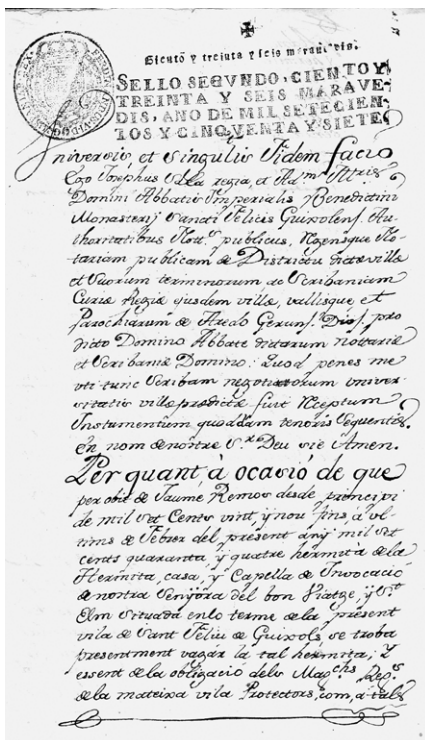 Ciento y treinta y seis maravedis.
SELLO SEGVNDO, CIENTO Y
TREINTA Y SEIS MARAVE-
DIS, AÑO DE MIL SETECIEN-
TOS Y CINQVENTA Y SIETE
Vniversis et singulis fidem facio
Ego Josephus Sala regia, et Adm.
Domini Abbatis Imperialis Benedictini
Monasterij Sancti Felicis Guixolens. Au-
thoritatibus Nott.s publicus, Regensque No-
tariam publicam de Districtu dictæ villæ
et Suorum terminorum ac Scribaniam
Curiæ Regiæ ejusdem villæ, vallisque et
Parochiarum de Aredo Gerun.s Dios. pro
dicto Domino Abbate dictarum notariæ
et Scribaniæ Domino: Quod penes me
uti tunc Scribam negotiatorum univer-
sitatis villæ prædictæ fuit Receptum
Instumentum quoddam tenoris sequentis.
En nom de nostre S.r Deu sie Amen.
Per quant, à ocasió de que
per obit de Jaume Remus desde principi
de mil set Cents vint, ÿ nou fins, à vl-
tims de Febrer del present anÿ mil set
cents quaranta, ÿ quatre hermita de la
Hermita, casa, ÿ Capella de Invocació
de nostra Senÿora del bon Viatge, ÿ S.t
Elm situada en lo terme de la present
vila de Sant Feliu de Guixols, se troba
presentment vagár la tal hermita; Y
essent de la obligació dels Mag.chs Reg.s
de la mateixa vila Protectors, com, á tals